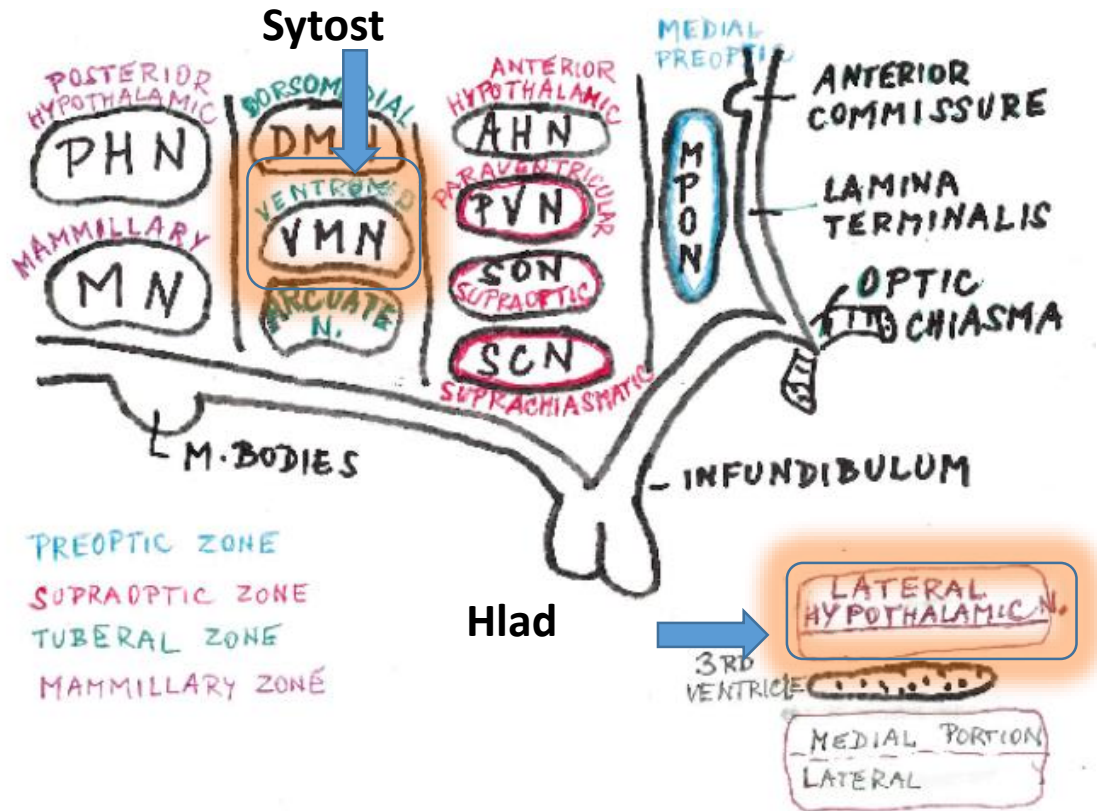 Sytost
POSTERIOR
HYPOTHALAMIC
PHN
MAMMILLARY
MN
DORSOMEDIAL
DMN
VENTROMED
VMN
ARCUATE
N.
ANTERIOR
HYPOTHALAMIC
AHN
PARAVENTRICULAR
PVN
SON
SUPRAOPTIC
SCN
SUPRACHIASMATIC
MEDIAL
PREOPTIC
MPON
ANTERIOR
COMMISSURE
LAMINA
TERMINALIS
OPTIC
CHIASMA
M. BODIES
INFUNDIBULUM
PREOPTIC ZONE
SUPRAOPTIC ZONE
TUBERAL ZONE
MAMMILLARY ZONE
Hlad
LATERAL
HYPOTHALAMIC N.
3RD
VENTRICLE
MEDIAL PORTION
LATERAL